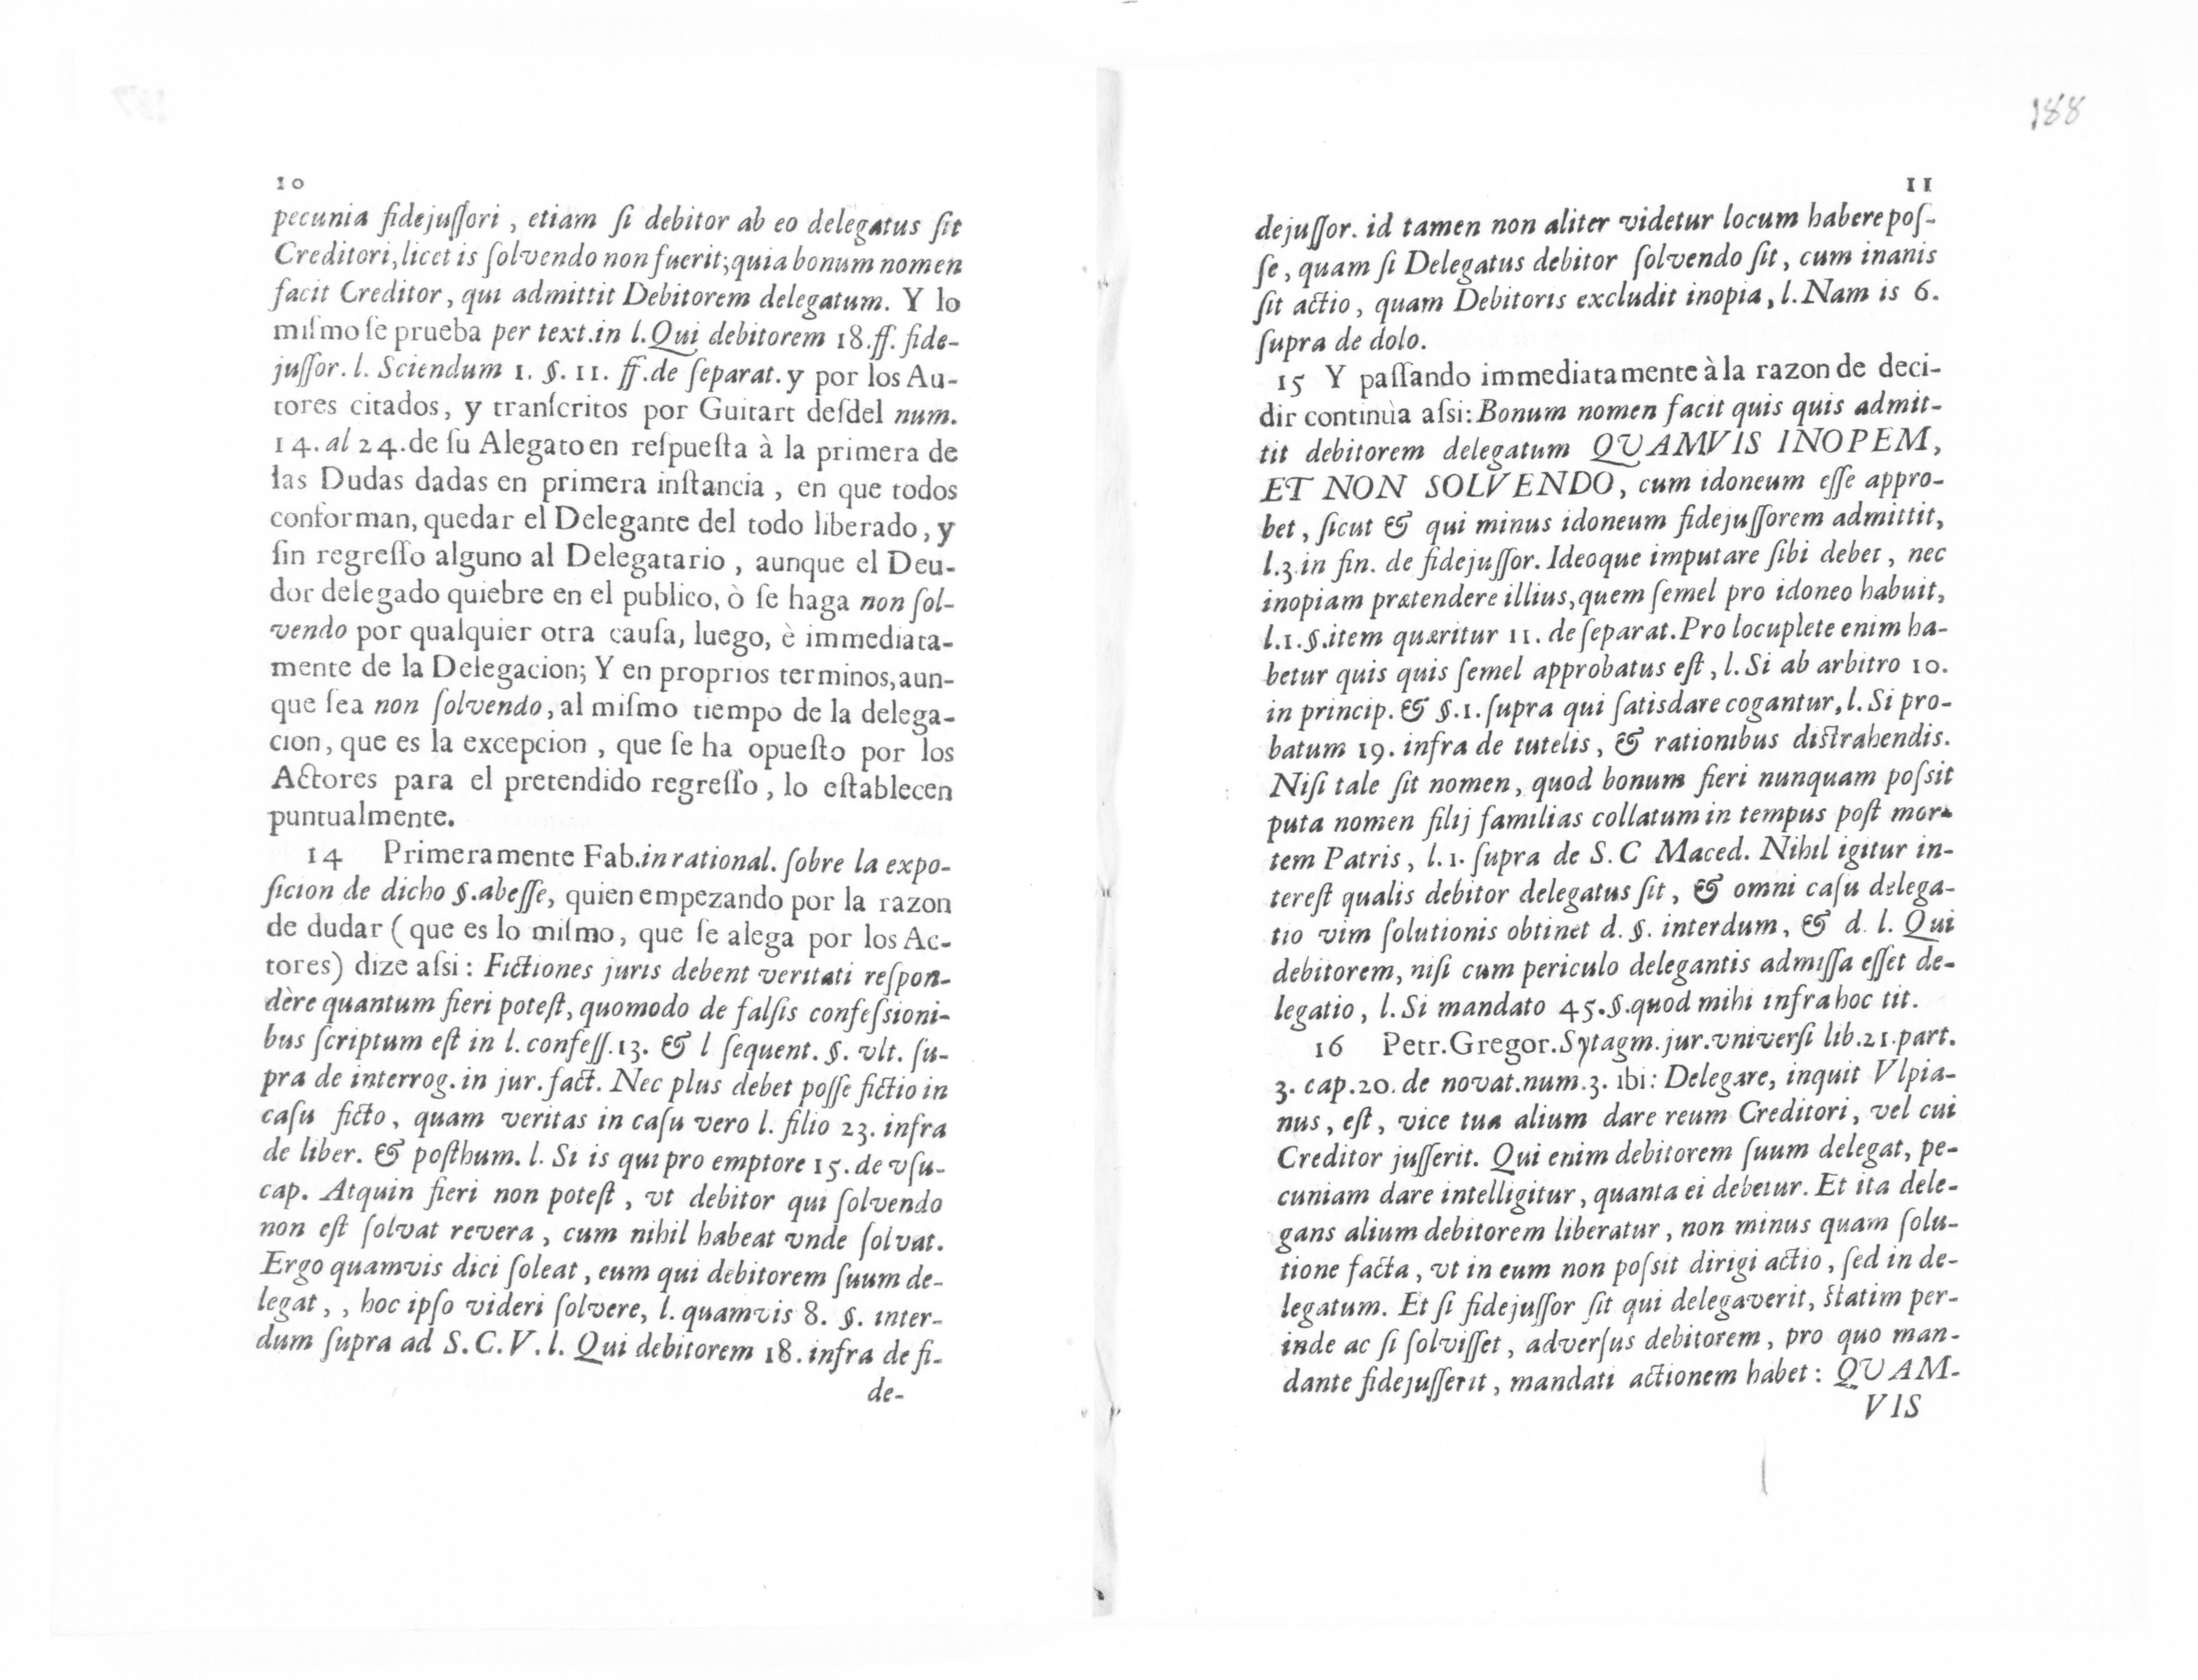 10
pecunia fidejuſſori, etiam ſi debitor ab eo delegatus ſit
Creditori, licet is ſolvendo non fuerit; quia bonum nomen
facit Creditor, qui admittit Debitorem delegatum. Y lo
miſmo ſe prueba per text. in l. Qui debitorem 18. ff. fide-
juſſor. l. Sciendum 1. §. 11. ff. de ſeparat. y por los Au-
tores citados, y tranſcritos por Guitart deſdel num.
14. al 24. de ſu Alegato en reſpueſta à la primera de
las Dudas dadas en primera inſtancia, en que todos
conforman, quedar el Delegante del todo liberado, y
ſin regreſſo alguno al Delegatario, aunque el Deu-
dor delegado quiebre en el publico, ò ſe haga non ſol-
vendo por qualquier otra cauſa, luego, è immediata-
mente de la Delegacion; Y en proprios terminos, aun-
que ſea non ſolvendo, al miſmo tiempo de la delega-
cion, que es la excepcion, que ſe ha opueſto por los
Actores para el pretendido regreſſo, lo eſtablecen
puntualmente.
14 Primeramente Fab. in rational. ſobre la expo-
ſicion de dicho §. abeſſe, quien empezando por la razon
de dudar (que es lo miſmo, que ſe alega por los Ac-
tores) dize aſsi: Fictiones juris debent veritati reſpon-
dère quantum fieri poteſt, quomodo de falſis confeſsioni-
bus ſcriptum eſt in l. confeſſ. 13. & l ſequent. §. vlt. ſu-
pra de interrog. in jur. fact. Nec plus debet poſſe fictio in
caſu ficto, quam veritas in caſu vero l. filio 23. infra
de liber. & poſthum. l. Si is qui pro emptore 15. de vſu-
cap. Atquin fieri non poteſt, vt debitor qui ſolvendo
non eſt ſolvat revera, cum nihil habeat vnde ſolvat.
Ergo quamvis dici ſoleat, eum qui debitorem ſuum de-
legat, , hoc ipſo videri ſolvere, l. quamvis 8. §. inter-
dum ſupra ad S. C. V. l. Qui debitorem 18. infra de fi-
de-
188
11
dejuſſor. id tamen non aliter videtur locum habere poſ-
ſe, quam ſi Delegatus debitor ſolvendo ſit, cum inanis
ſit actio, quam Debitoris excludit inopia, l. Nam is 6.
ſupra de dolo.
15 Y paſſando immediatamente à la razon de deci-
dir continùa aſsi: Bonum nomen facit quis quis admit-
tit debitorem delegatum QUAMVIS INOPEM,
ET NON SOLVENDO, cum idoneum eſſe appro-
bet, ſicut & qui minus idoneum fidejuſſorem admittit,
l. 3. in fin. de fidejuſſor. Ideoque imputare ſibi debet, nec
inopiam prætendere illius, quem ſemel pro idoneo habuit,
l. 1. §. item quæritur 11. de ſeparat. Pro locuplete enim ha-
betur quis quis ſemel approbatus eſt, l. Si ab arbitro 10.
in princip. & §. 1. ſupra qui ſatisdare cogantur, l. Si pro-
batum 19. infra de tutelis, & rationibus diſtrahendis.
Niſi tale ſit nomen, quod bonum fieri nunquam poſsit
puta nomen filij familias collatum in tempus poſt mor-
tem Patris, l. 1. ſupra de S. C Maced. Nihil igitur in-
tereſt qualis debitor delegatus ſit, & omni caſu delega-
tio vim ſolutionis obtinet d. §. interdum, & d. l. Qui
debitorem, niſi cum periculo delegantis admiſſa eſſet de-
legatio, l. Si mandato 45. §. quod mihi infra hoc tit.
16 Petr. Gregor. Sytagm. jur. vniverſi lib. 21. part.
3. cap. 20. de novat. num. 3. ibi: Delegare, inquit Vlpia-
nus, eſt, vice tua alium dare reum Creditori, vel cui
Creditor juſſerit. Qui enim debitorem ſuum delegat, pe-
cuniam dare intelligitur, quanta ei debetur. Et ita dele-
gans alium debitorem liberatur, non minus quam ſolu-
tione facta, vt in eum non poſsit dirigi actio, ſed in de-
legatum. Et ſi fidejuſſor ſit qui delegaverit, ſtatim per-
inde ac ſi ſolviſſet, adverſus debitorem, pro quo man-
dante fidejuſſerit, mandati actionem habet: QUAM-
VIS